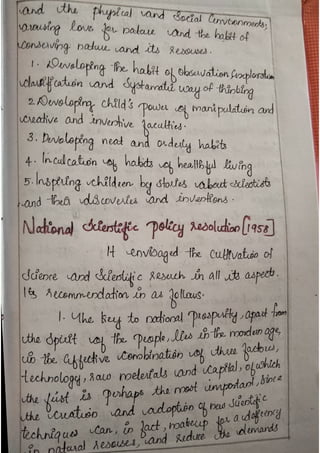 and the physical and Social Environments;
arousing love for nature and the habit of
conserving nature and its resouses.
1. Developing the habit of observation, exploration
classification and Systamatic way of thinking
2. Developing child's power of manipulation and
creative and inventive faculties.
3. Developing neat and orderly habits
4. Inculcation of habits of healthful living
5. Inspiring children by stories about scientists
and their discoveries and inventions.
National Scientific Policy resolution [1958]
It envisaged the cultivation of
Science and Scientific reseuch in all its aspects.
Its recommendation in as follows.
1. The key to national Prospurity, apart from
the Spirit of the People, lies in the mordern age,
in the effective combination of three factors,
technology, raw meterials and capital, of which
the first is perhaps the most important, Since
the creation and adoption of new Scientific
techniques can, in fact, makeup for a
in natural resouses, and reduce the demands